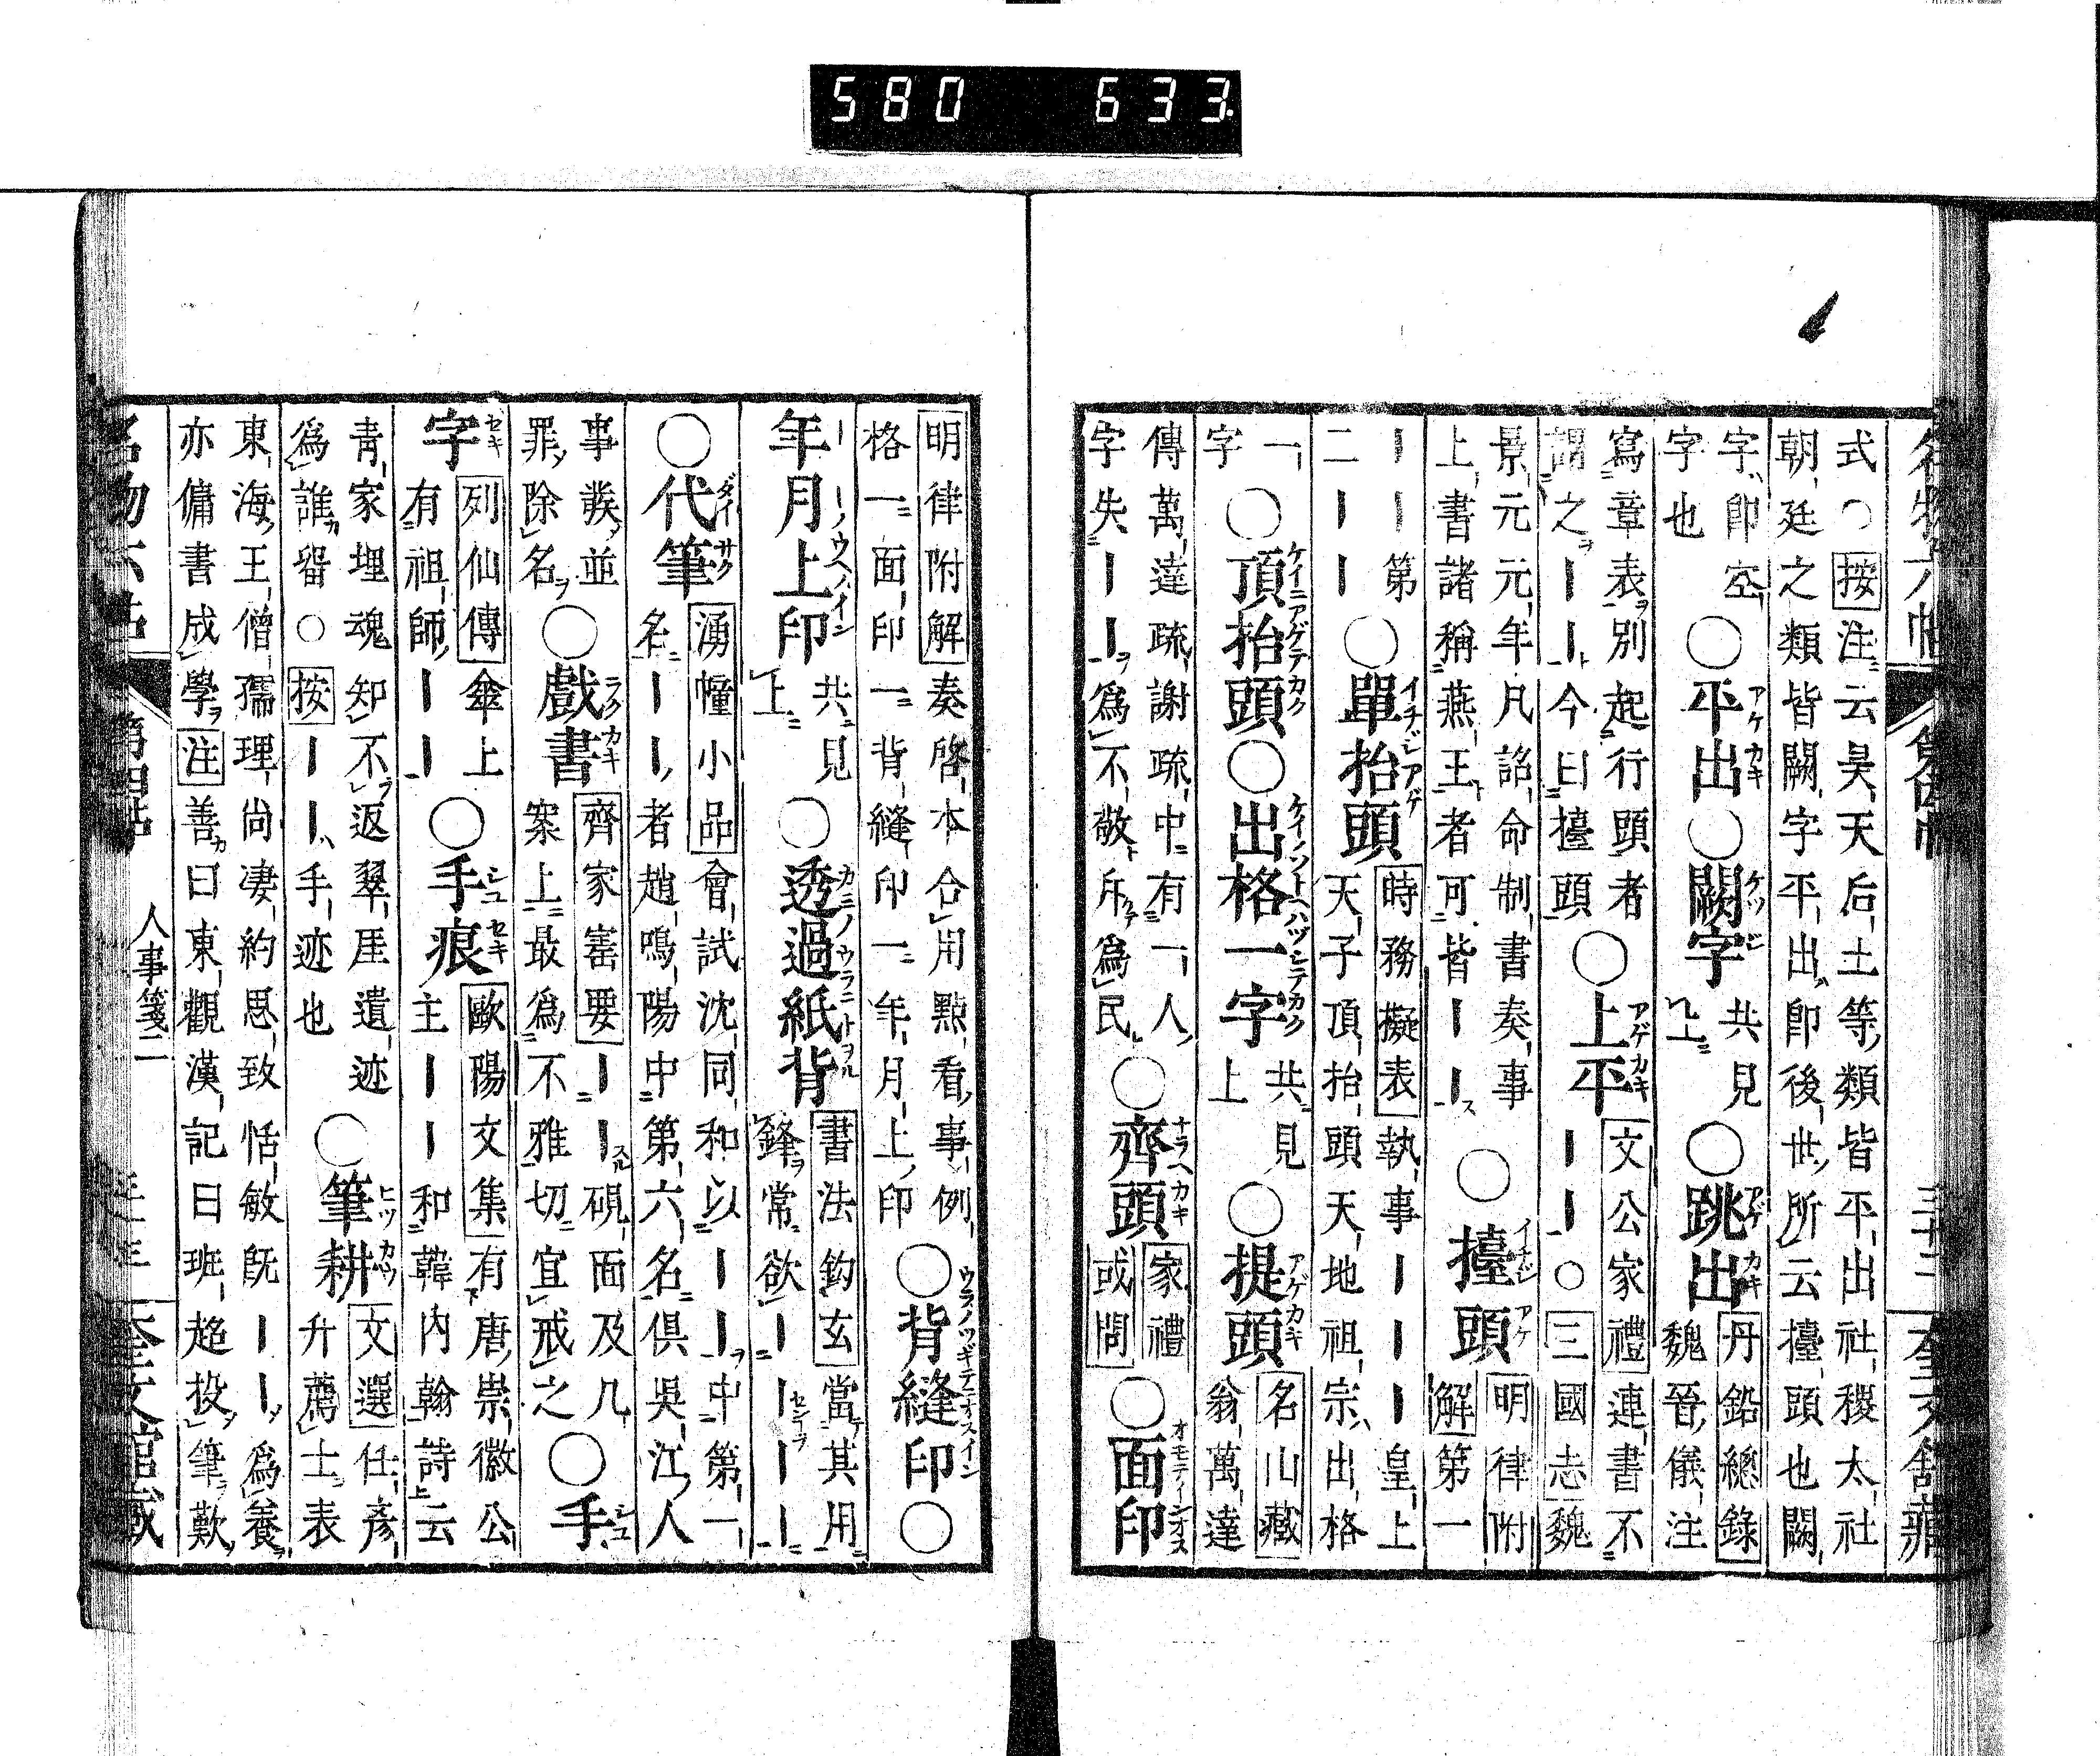 580 633
式〇按注云昊天后土等類皆平出社稷太社
朝廷之類皆闕字平出即後世所云擡頭也闕
字即空
字也
〇平出〇闕字共見上〇跳出丹鉛總錄
魏晉儀注
寫章表別起行頭者
謂之ーー今曰擡頭
〇上平文公家禮連書不
ーー〇三國志魏
景元元年凡詔命制書奏事
上書諸稱燕王者可皆ーー
〇擡頭明律附
解第一
ーー第
二ーー
〇單抬頭時務擬表執事ーーー皇上
天子頂抬頭天地祖宗出格
一
字
〇頂抬頭〇出格一字共見上〇提頭名山藏
翁萬達
傳萬達疏謝疏中有一人
字失ーー為不敬斥為民
〇齊頭家禮
或問
〇面印
明律附解奏啓本合用㸃看事例
格一面印一背縫印一年月上印
〇背縫印〇
年月上印共見上〇透過紙背書法鈎玄當其用
鋒常欲ーーーー
〇代筆湧幢小品會試沈同和以ーー中第一
名ーー者趙鳴陽中第六名俱吳江人
事發並
罪除名
〇戲書齊家寚要ーー硯面及几
案上最爲不雅切宜戒之
〇手
字列仙傳傘上
有祖師ーー
〇手痕歐陽文集有唐崇徽公
主ーー和韓內翰詩云
青家埋魂知不返翠厓遺迹
爲誰畱〇按ーー手迹也
〇筆耕文選任彥
升薦士表
東海王僧孺理尚凄約思致恬敏既ーー爲養
亦傭書成學注善曰東觀漢記曰班超投筆歎
人事箋二